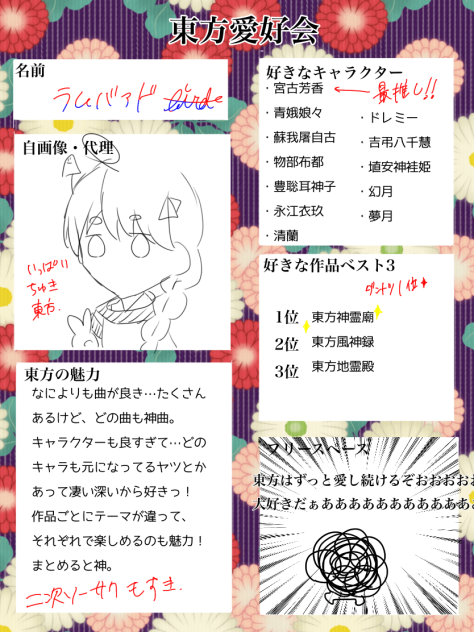 東方愛好会
名前
ラムバアド
自画像・代理
いっぱい
ちゅき
東方.
東方の魅力
なによりも曲が良き…たくさん
あるけど、どの曲も神曲。
キャラクターも良すぎて…どの
キャラも元になってるヤツとか
あって凄い深いから好きっ！
作品ごとにテーマが違って、
それぞれで楽しめるのも魅力！
まとめると神。
二次ソーサクもすき.
好きなキャラクター
・宮古芳香 ← 最推し!!
・青娥娘々
・蘇我屠自古
・物部布都
・豊聡耳神子
・永江衣玖
・清蘭
・ドレミー
・吉弔八千慧
・埴安神袿姫
・幻月
・夢月
好きな作品ベスト3
ダントツ1位
1位 東方神霊廟
2位 東方風神録
3位 東方地霊殿
フリースペース
東方はずっと愛し続けるぞおおおおお
大好きだぁああああああああああああ